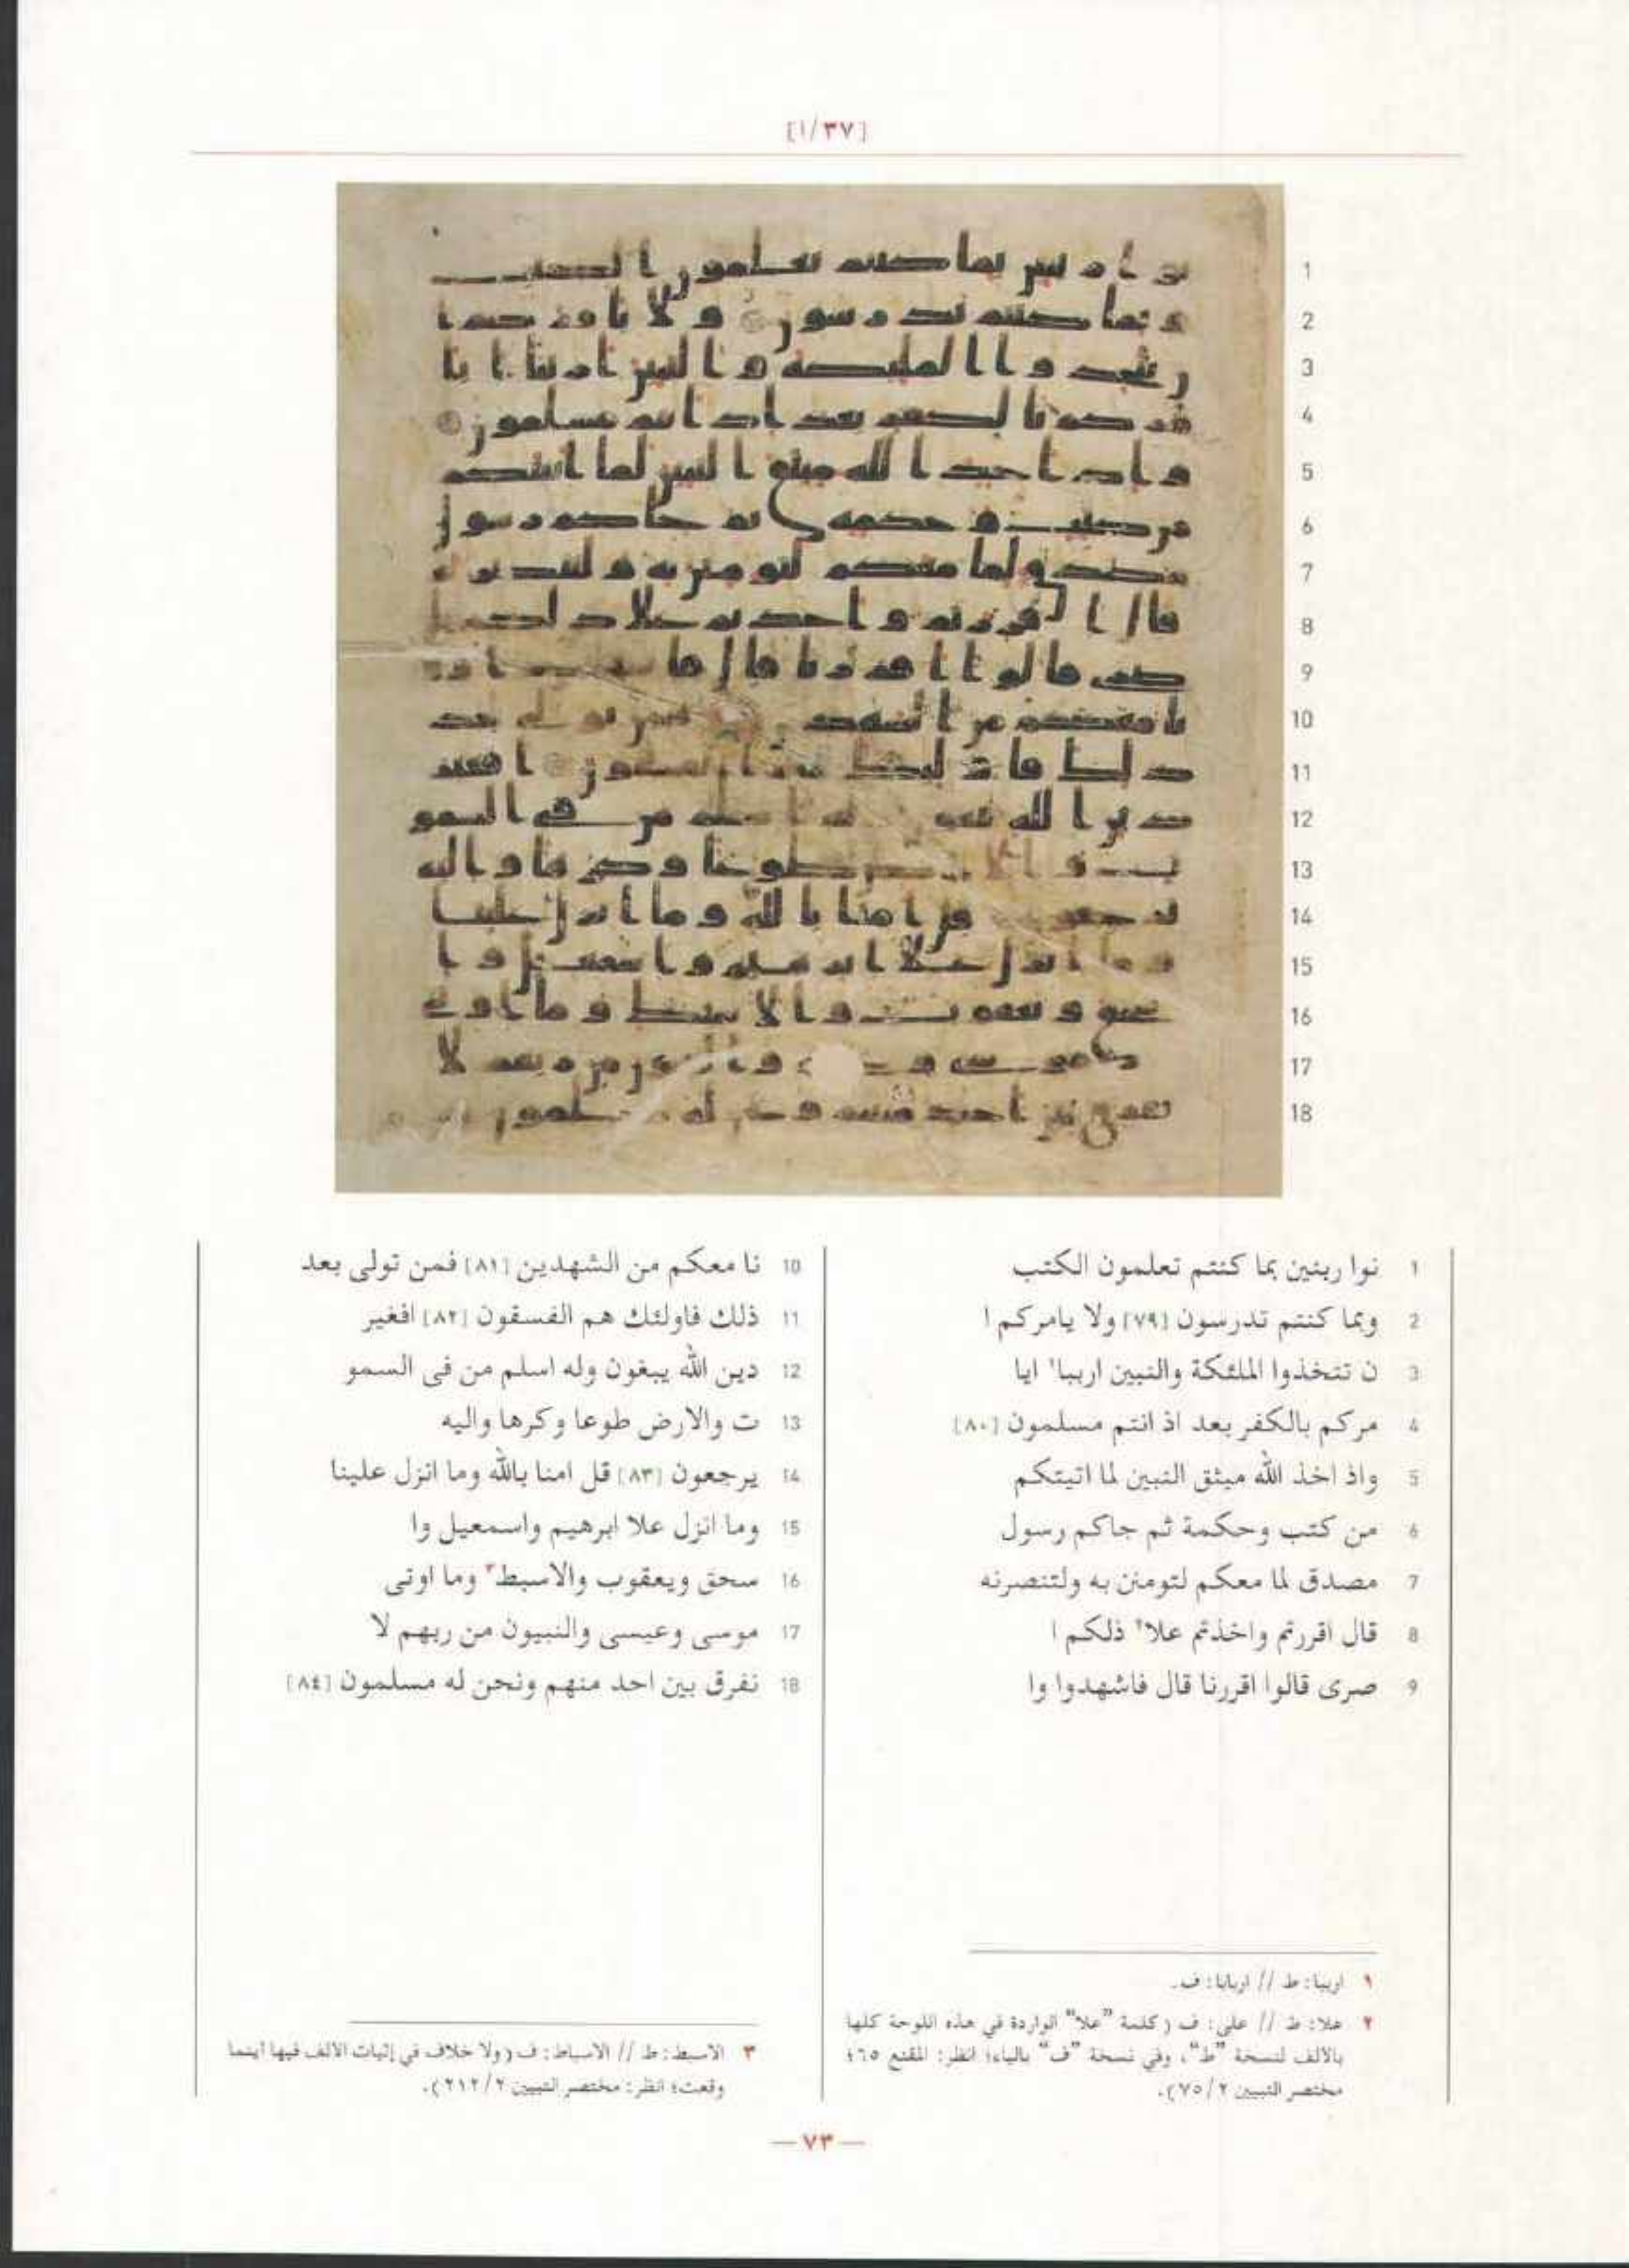 [٣٧/١]
1
2
3
4
5
6
7
8
9
10
11
12
13
14
15
16
17
18
١ نوا ربنين بما كنتم تعلمون الكتب
٢ وبما كنتم تدرسون [٧٩] ولا يامركم ا
3 ن تتخذوا الملئكة والنبين اربيا١ ايا
4 مركم بالكفر بعد اذ انتم مسلمون [٨٠]
5 واذ اخذ الله ميثق النبين لما اتيتكم
6 من كتب وحكمة ثم جاكم رسول
7 مصدق لما معكم لتومنن به ولتنصرنه
8 قال اقررتم واخذتم علا٢ ذلكم ا
9 صرى قالوا اقررنا قال فاشهدوا وا
10 نا معكم من الشهدين [٨١] فمن تولى بعد
11 ذلك فاولئك هم الفسقون [٨٢] افغير
12 دين الله يبغون وله اسلم من فى السمو
13 ت والارض طوعا وكرها واليه
14 يرجعون [٨٣] قل امنا بالله وما انزل علينا
15 وما انزل علا ابرهيم واسمعيل وا
16 سحق ويعقوب والاسبط٣ وما اوتى
17 موسى وعيسى والنبيون من ربهم لا
18 نفرق بين احد منهم ونحن له مسلمون [٨٤]
١ اربيا: ط // اربابا: ف.
٢ علا: ط // على: ف (كلمة "علا" الواردة في هذه اللوحة كلها
بالالف لنسخة "ط"، وفي نسخة "ف" بالياء؛ انظر: المقنع ٦٥؛
مختصر التبيين ٧٥/٢).
٣ الاسبط: ط // الاسباط: ف (ولا خلاف في إثبات الالف فيها اينما
وقعت؛ انظر: مختصر التبيين ٢١٢/٢).
— ٧٣ —